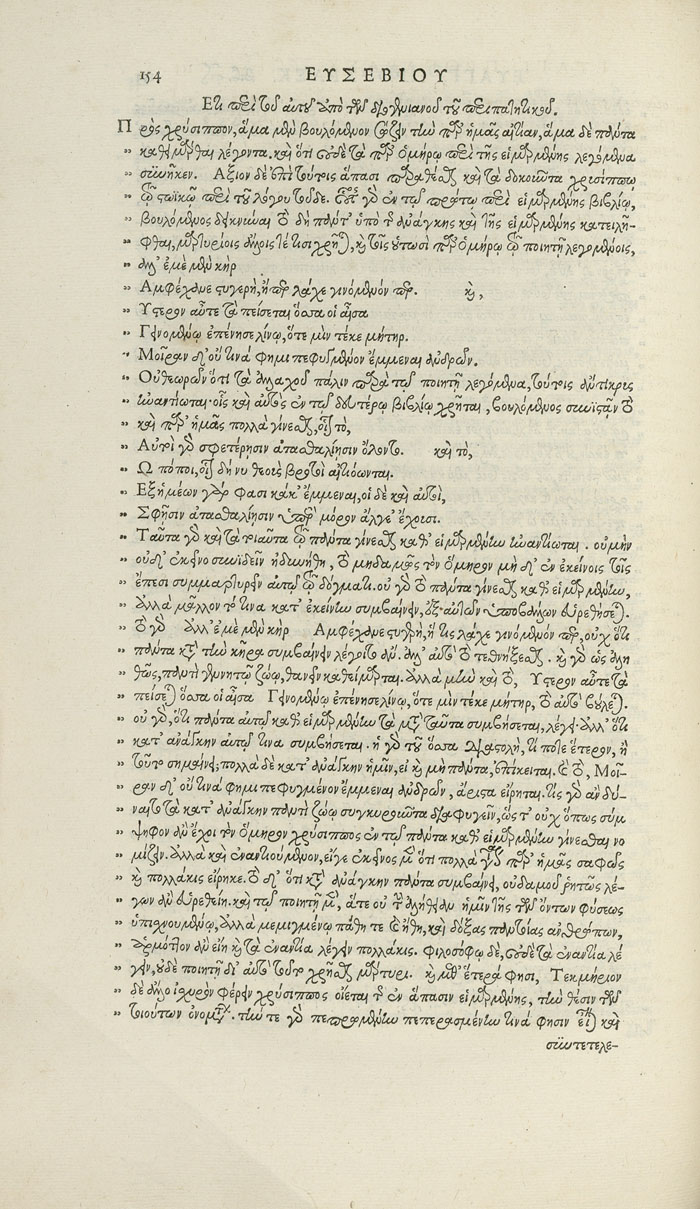 154 ΕΥΣΕΒΙΟΥ
Ετι περὶ τοῦ αὐτοῦ ἀπὸ τῶν διογενιανοῦ τοῦ περιπατητικοῦ.
Πρὸς χρύσιππον, ἅμα μὲν βουλόμενον σώζειν τὴν παρ' ἡμᾶς αἰτίαν, ἅμα δὲ πάντα
„ καθειμάρθαι λέγοντα. καὶ ὅτι οὐδὲ τὰ παρ' ὁμήρῳ περὶ τῆς εἱμαρμένης λεγόμενα
„ συνῆκεν. Αξιον δὲ ἐπὶ τούτοις ἅπασι παραθέσθαι καὶ τὰ δοκοῦντα χρυσίππῳ
„ τῷ στωϊκῷ περὶ τοῦ λόγου τοῦδε. ἐστὶ γὰρ ἐν τῷ πρώτῳ περὶ εἱμαρμένης βιβλίῳ,
„ βουλόμενος δεικνύναι τὸ δὴ πάντ' ὑπὸ τῆς ἀνάγκης καὶ τῆς εἱμαρμένης κατειλῆ-
„ φθαι, μαρτυρίοις ἄλλοις τέ τισι χρῆται, καὶ τοῖς οὕτωσὶ παρ' ὁμήρῳ τῷ ποιητῇ λεγομένοις,
„ ἀλλ' ἐμὲ μὲν κὴρ
„ Αμφέχανε στυγερὴ, ἥπερ λάχε γινόμενόν περ. καὶ,
„ Υστερον αὖτε τὰ πείσεται ὅασα οἱ αἶσα
„ Γεινομένῳ ἐπένησε λίνῳ, ὅτε μὶν τέκε μήτηρ.
„ Μοῖραν δ' οὔ τινά φημι πεφυγμένον ἔμμεναι ἀνδρῶν.
„ Οὐ θεωρῶν ὅτι τὰ ἀλλαχοῦ πάλιν παρὰ τῷ ποιητῇ λεγόμενα, τούτοις ἄντικρις
„ ἠναντίωται· οἷς καὶ αὐτὸς ἐν τῷ δευτέρῳ βιβλίῳ χρῆται, βουλόμενος συνιστᾶν τὸ
„ καὶ παρ' ἡμᾶς πολλὰ γίνεσθαι, οἷον τὸ,
„ Αὐτοὶ γὰρ σφετέρησιν ἀτασθαλίησιν ὄλοντο. καὶ τὸ,
„ Ω πόποι, οἷον δή νυ θεοὺς βροτοὶ αἰτιόωνται.
„ Εξ ἡμέων γάρ φασι κάκ' ἔμμεναι, οἱ δὲ καὶ αὐτοὶ,
„ Σφῇσιν ἀτασθαλίησιν ὑπὲρ μόρον ἄλγε' ἔχουσι.
„ Ταῦτα γὰρ καὶ τὰ τοιαῦτα τῷ πάντα γίνεσθαι καθ' εἱμαρμένην ἠναντίωται. οὐ μὴν
„ οὐδ' ἐκεῖνο συνιδεῖν ἠδυνήθη, τὸ μηδαμῶς τὸν ὅμηρον μὴ δ' ἐν ἐκείνοις τοῖς
„ ἔπεσι συμμαρτυρεῖν αὐτῷ τῷ δόγματι. οὐ γὰρ τὸ πάντα γίνεσθαι καθ' εἱμαρμένην,
„ ἀλλὰ μᾶλλον τό τινα κατ' ἐκείνην συμβαίνειν, ἐξ αὐτῶν ὑποβάλλων εὑρεθήσεται.
„ τὸ γὰρ ἀλλ' ἐμὲ μὲν κὴρ Αμφέχανε στυγερὴ, ἥτις λάχε γινόμενόν περ, οὐχ ὅτι
„ πάντα κατὰ τὴν κῆρα συμβαίνειν λέγοιτο ἂν. ἀλλ' αὐτὸ τὸ τεθνήξεσθαι. καὶ γὰρ ὡς ἀλη
„ θῶς, παντὶ γεννητῷ ζώῳ, θανεῖν καθείμαρται. ἀλλὰ μὴν καὶ τὸ, Υστερον αὖτε τὰ
„ πείσεται ὅασα οἱ αἶσα Γεινομένῳ ἐπένησε λίνῳ, ὅτε μὶν τέκε μήτηρ, τὸ αὐτὸ βούλεται.
„ οὐ γὰρ, ὅτι πάντα αὐτῷ καθ' εἱμαρμένην τὰ μετὰ ταῦτα συμβήσεται, λέγει· ἀλλ' ὅτι
„ κατ' ἀνάγκην αὐτῷ τινα συμβήσεται. ἡ γὰρ τοῦ ὅασα διαστολὴ, τί πολε ἕτερον, ἢ
„ τοῦτο σημαίνει; πολλὰ δὲ κατ' ἀνάγκην ἡμῖν, εἰ καὶ μὴ πάντα, ἐπίκειται. καὶ τὸ, Μοῖ-
„ ραν δ' οὔ τινά φημι πεφυγμένον ἔμμεναι ἀνδρῶν, ἄριστα εἴρηται. τίς γὰρ ἂν δύ-
„ ναιτο τὰ κατ' ἀνάγκην παντὶ ζώῳ συγκυροῦντα διαφυγεῖν, ὥς τ' οὐχ ὅπως σύμ
„ ψηφον ἂν ἔχοι τὸν ὅμηρον χρύσιππος ἐν τῷ πάντα καθ' εἱμαρμένην γίνεσθαι νο
„ μίζειν. ἀλλὰ καὶ ἐναντιούμενον, εἴγε ἐκεῖνος μὲν ὅτι πολλὰ γίνεται παρ' ἡμᾶς σαφῶς
„ καὶ πολλάκις εἴρηκε. τὸ δ' ὅτι κατὰ ἀνάγκην πάντα συμβαίνει, οὐδαμοῦ ῥητῶς λέ-
„ γων ἂν εὑρεθείη. καὶ τῷ ποιητῇ μὲν, ἅτε οὐ τὸ ἀληθὲς ἂν ἡμῖν τῆς τῶν ὄντων φύσεως
„ ὑπισχνουμένῳ, ἀλλὰ μεμιγμένῳ πάθη τε καὶ ἤθη, καὶ δόξας παντοίας ἀνθρώπων,
„ ἁρμόττον ἂν εἴη καὶ τὰ ἐναντία λέγειν πολλάκις. φιλοσόφῳ δὲ, οὐδὲ τὰ ἐναντία λέ
„ γειν, οὐδὲ ποιητῇ δι' αὐτὸ τοῦτο χρῆσθαι μάρτυρι. καὶ μεθ' ἕτερά φησι, Τεκμήριον
„ δὲ ἄλλο ἰσχυρὸν φέρειν χρύσιππος οἴεται τοῦ ἐν ἅπασιν εἱμαρμένης, τὴν θέσιν τῶν
„ τοιούτων ὀνομάτων. τήν τε γὰρ πεπρωμένην πεπερασμένην τινά φησιν εἶναι καὶ
συντετελε-